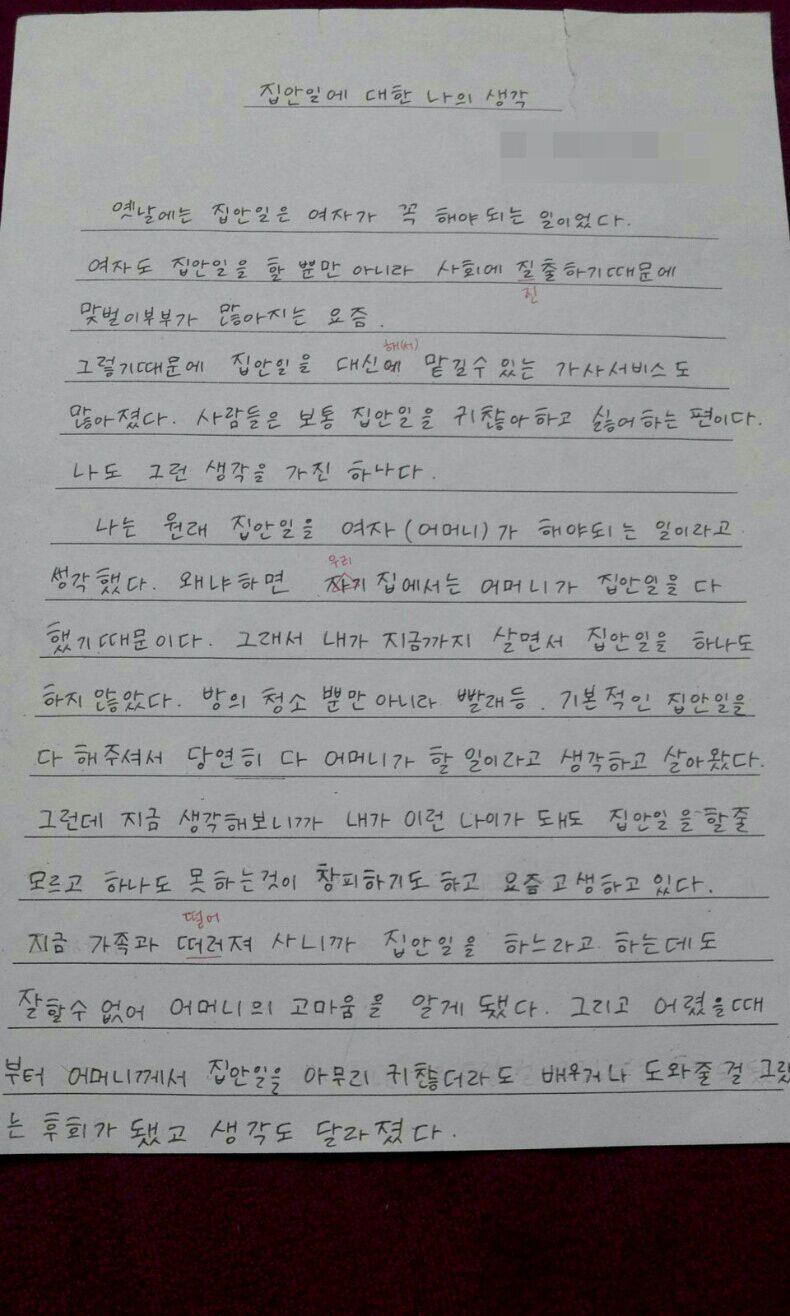 집안일에 대한 나의 생각
옛날에는 집안일은 여자가 꼭 해야 되는 일이었다.
여자도 집안일을 할 뿐만 아니라 사회에 질출하기때문에
진
맞벌이부부가 많아지는 요즘.
해(서)
그렇기때문에 집안일을 대신에 맡길수 있는 가사서비스도
많아졌다. 사람들은 보통 집안일을 귀찮아하고 싫어하는 편이다.
나도 그런 생각을 가진 하나다.
나는 원래 집안일을 여자(어머니)가 해야되는 일이라고
우리
생각했다. 왜냐하면 자기 집에서는 어머니가 집안일을 다
했기때문이다. 그래서 내가 지금까지 살면서 집안일을 하나도
하지 않았다. 방의 청소 뿐만 아니라 빨래등. 기본적인 집안일을
다 해주셔서 당연히 다 어머니가 할 일이라고 생각하고 살아왔다.
그런데 지금 생각해보니까 내가 이런 나이가 돼도 집안일을할줄
모르고 하나도 못하는것이 창피하기도 하고 요즘고생하고 있다.
떨어
지금 가족과 떠러져 사니까 집안일을 하느라고 하는데도
잘할수 없어 어머니의 고마움을 알게 됐다. 그리고 어렸을때
부터 어머니께서 집안일을 아무리 귀찮더라도 배우거나 도와줄 걸 그랬
는 후회가 됐고 생각도 달라졌다.